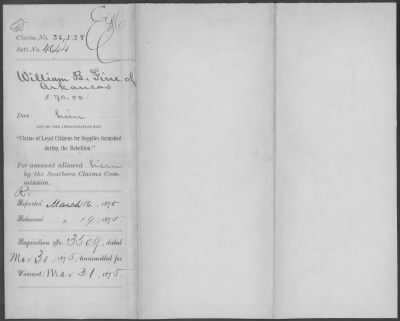 Claim No. 36,538
Sett. No. 4644
William B. Fine of
Arkansas
$ 70.00
Due him
OUT OF THE APPROPRIATION FOR
"Claims of Loyal Citizens for Supplies furnished
during the Rebellion."
For amount allowed him
by the Southern Claims Com-
mission.
R.
Reported March 16, 1875
Returned " 19, 1875
Requisition No. 3509, dated
Mar 30 1875, transmitted for
Warrant Mar 31 1875